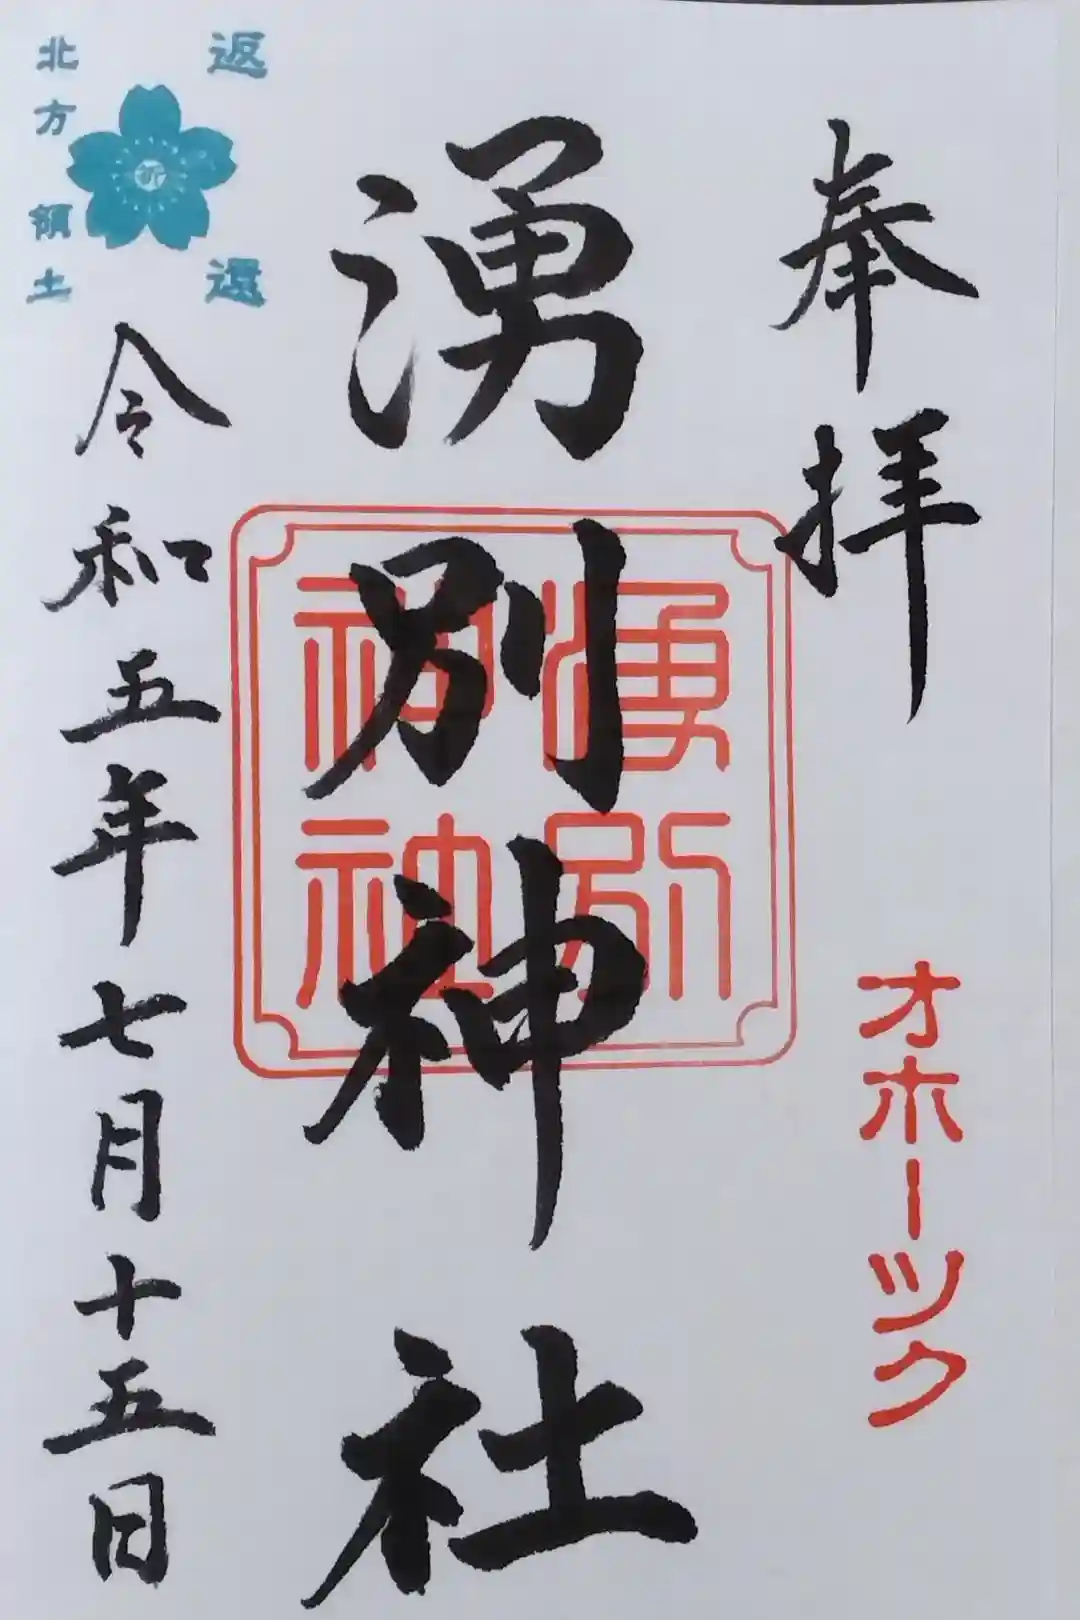 奉拝
オホーツク
湧別神社
湧別
神社
北方領土
祈
返還
令和五年七月十五日